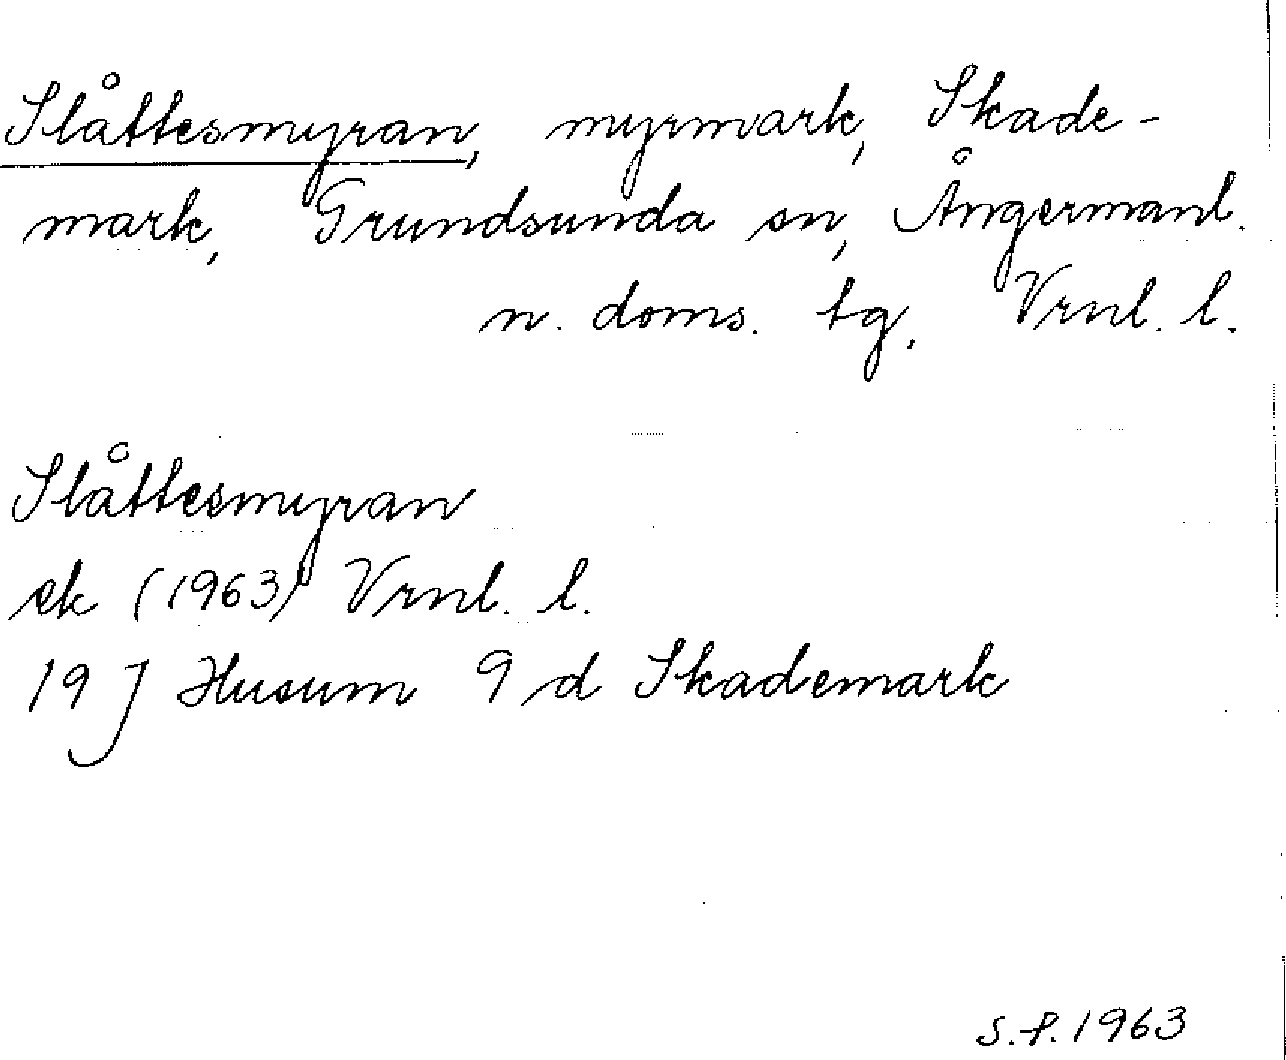 Slåttesmyran, myrmark, Skade-
mark, Grundsunda sn, Ångermanl.
n. doms. tg. Vrnl. l.
Slåttesmyran
ek (1963) Vrnl. l.
19 J Husum 9 d Skademark
S.P. 1963